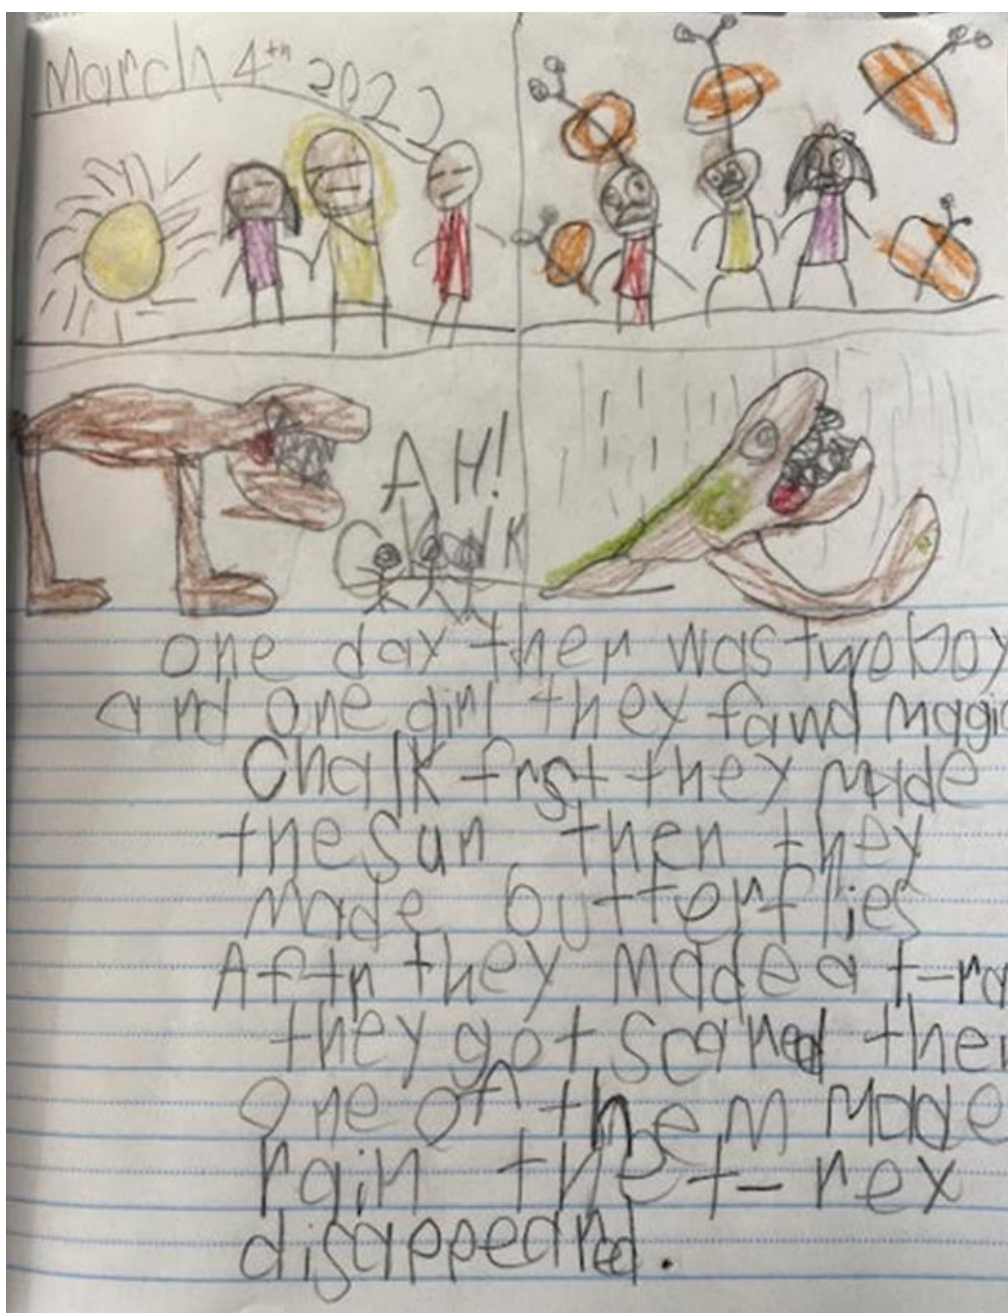 March 4th 2022
AH!
Chalk
one day ther was two boy
and one girl they fawd magic
Chalk frst they made
the sun then they
made butterflies
Aftr they made a t-re
they got scared then
one of them made
rain the t-rex
disappeared.